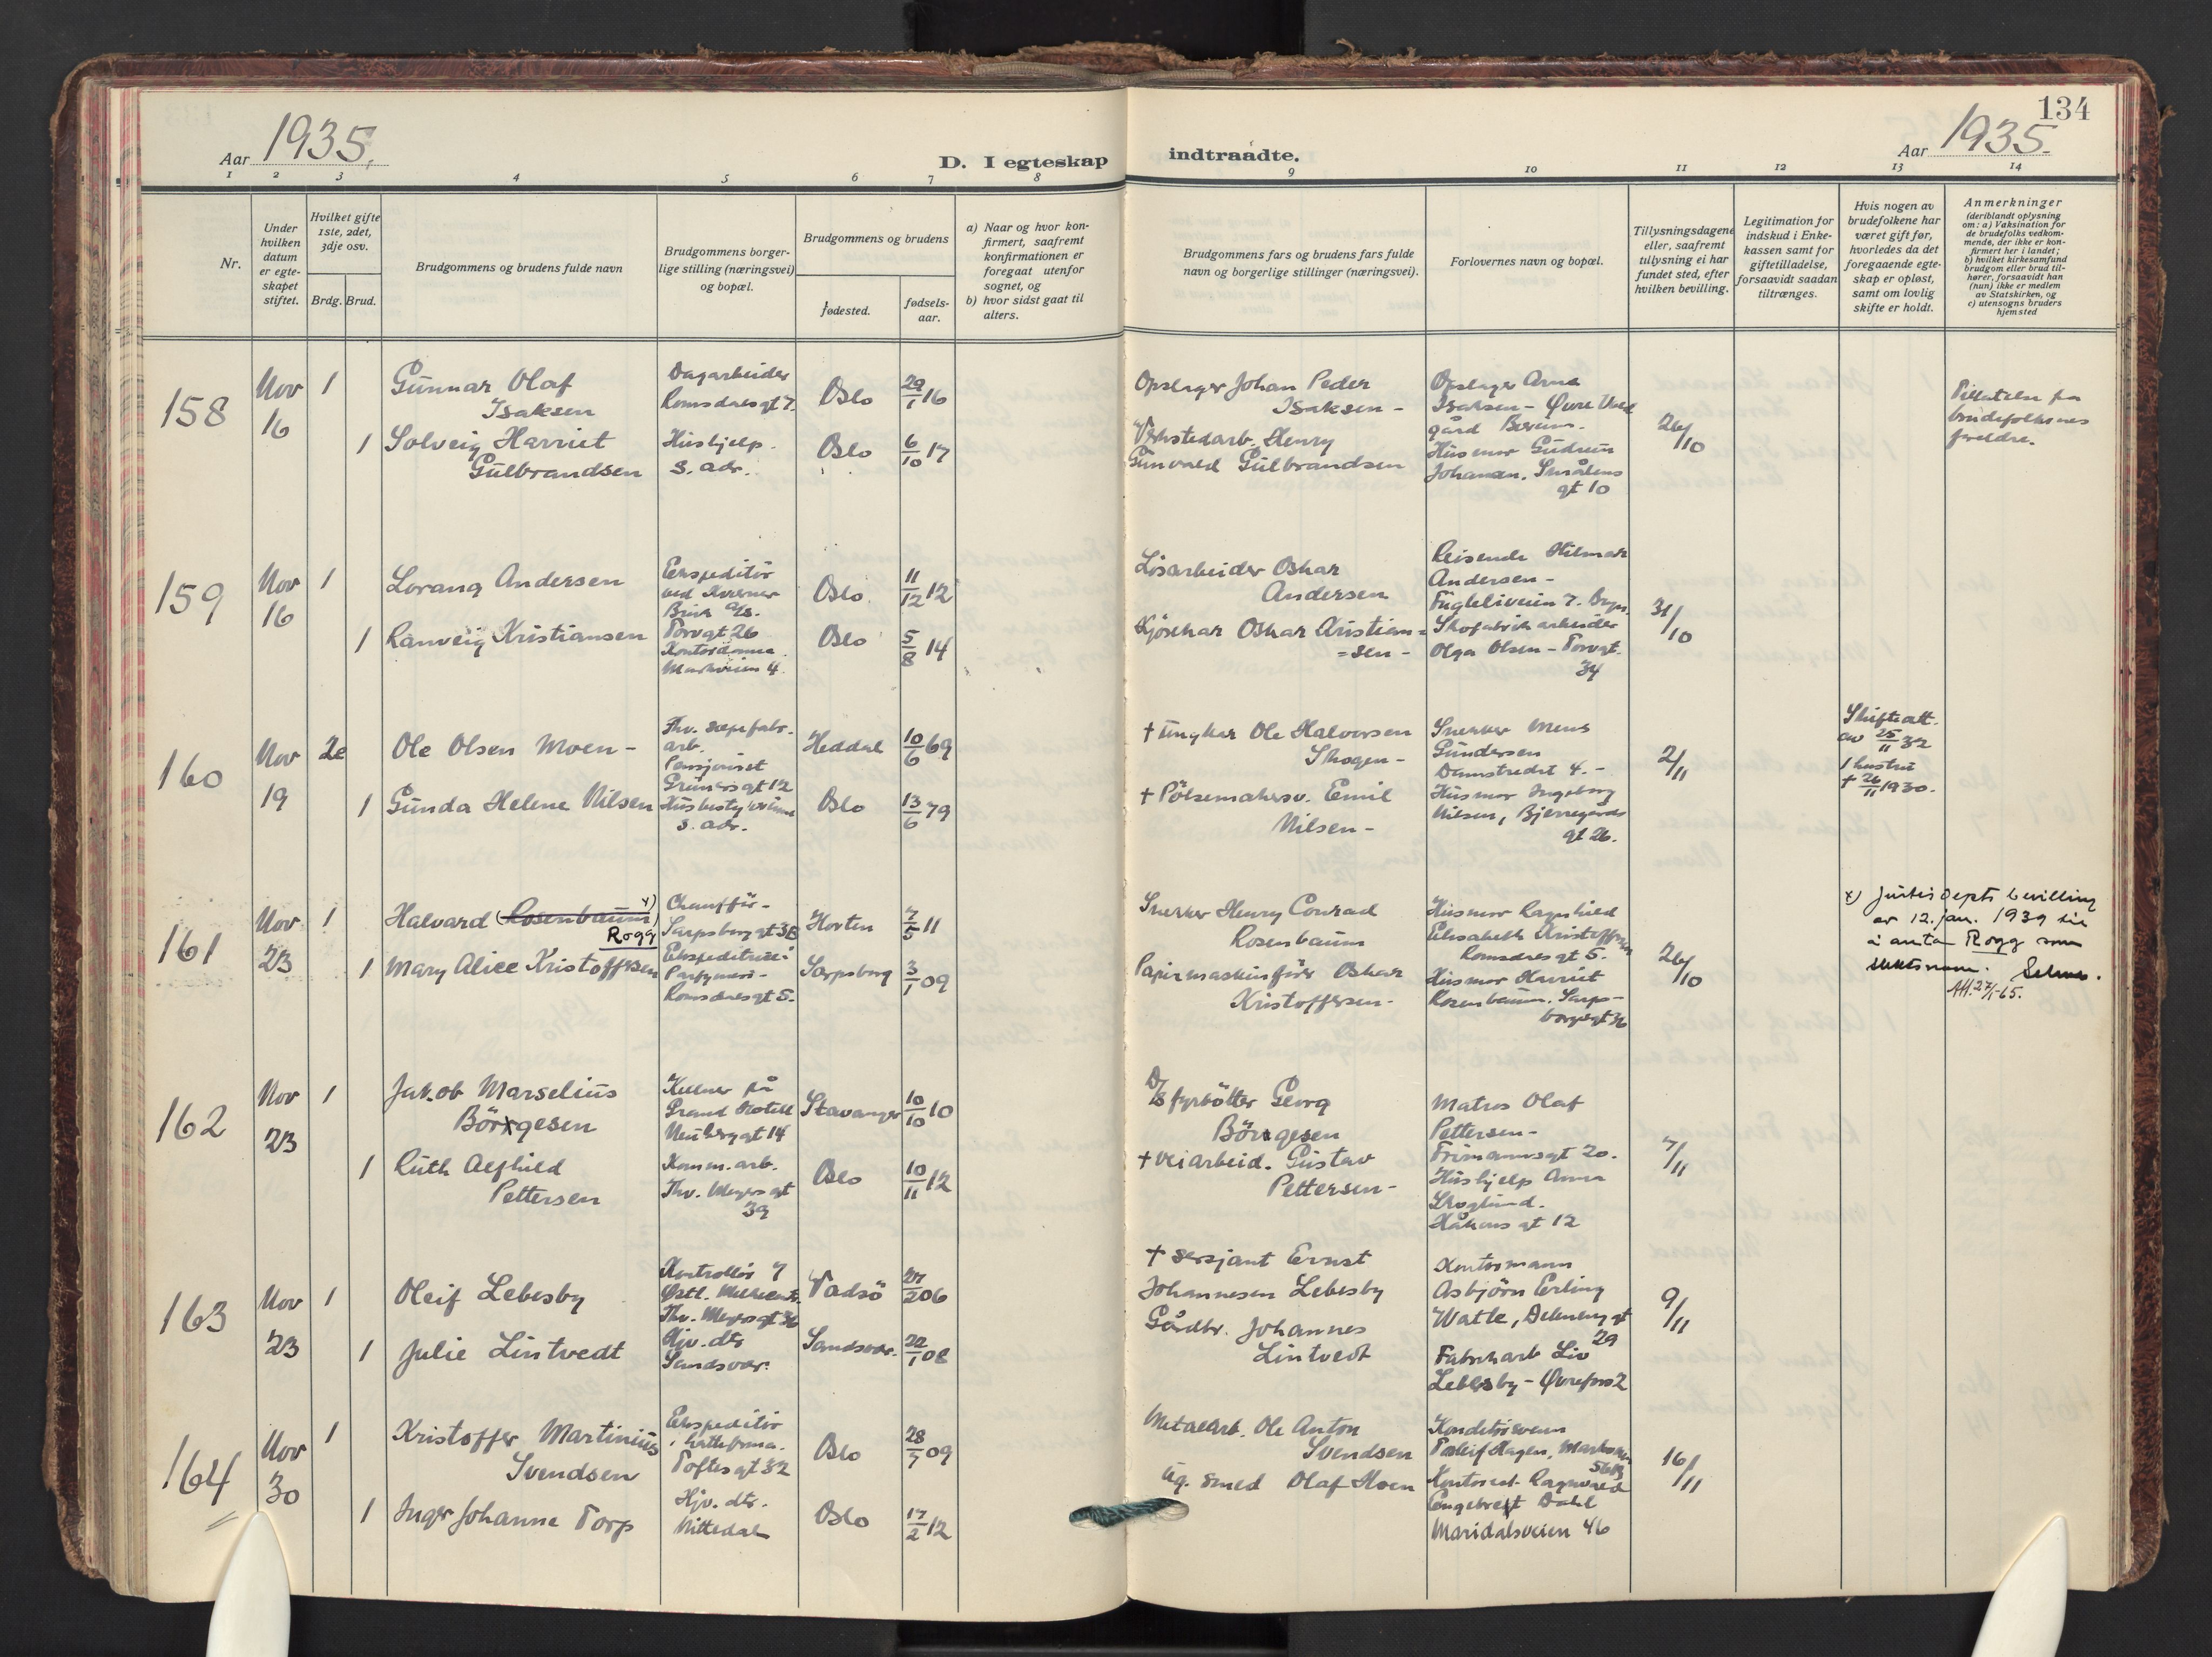 134
Aar 1935.
D. I egteskap
indtraadte.
Aar 1935
1 2 3 4 5 6 7 8 9 10 11 12 13 14
Nr.
Under
hvilken
datum
er egte-
skapet
stiftet.
Hvilket gifte
1ste, 2det,
3dje osv.
Brdg. Brud.
Brudgommens og brudens fulde navn
Brudgommens borger-
lige stilling (næringsvei)
og bopæl.
Brudgommens og brudens
fødested.
fødsels-
aar.
a) Naar og hvor kon-
firmert, saafremt
konfirmationen er
foregaat utenfor
sognet, og
b) hvor sidst gaat til
alters.
Brudgommens fars og brudens fars fulde
navn og borgerlige stillinger (næringsvei).
Forlovernes navn og bopæl.
Tillysningsdagene
eller, saafremt
tillysning ei har
fundet sted, efter
hvilken bevilling.
Legitimation for
indskud i Enke-
kassen samt for
giftetilladelse,
forsaavidt saadan
tiltrænges.
Hvis nogen av
brudefolkene har
været gift før,
hvorledes da det
foregaaende egte-
skap er opløst,
samt om lovlig
skifte er holdt.
Anmerkninger
(deriblandt oplysning
om: a) Vaksination for
de brudefolks vedkom-
mende, der ikke er kon-
firmert her i landet;
b) hvilket kirkesamfund
brudgom eller brud til-
hører, forsaavidt han
(hun) ikke er medlem
av Statskirken, og
c) utensogns bruders
hjemsted
158
Nov
16
1
Gunnar Olaf
Isaksen
Dagarbeider
Romsdalsgt 7.
Oslo
29/1 16
1
Solveig Harriet
Gulbrandsen
Hushjelp.
s. adr.
Oslo
6/10 17
Opslager Johan Peder
Isaksen -
Verkstedarb. Henry
Gunvald Gulbrandsen
Opslager Arne
Isaksen - Øvre
gård Bærum.
Husmor Gudrun
Johansen. Smålens
gt 10
26/10
Tillatelse fra
brudefolkenes
foreldre.
159
Nov
16
1
Lorang Andersen
Ekspeditör
ved Kværner
Bruk a/s.
Torvgt 26
Oslo.
11/12 12
1
Ranveig Kristiansen
Kontordame.
Markveien 4.
Oslo
5/8 14
Lösarbeider Oskar
Andersen
Kjörekar Oskar Kristian=
=sen -
Reisende Hilmar
Andersen -
Fugleliveien 7. Bryn.
Skofabrikarbeider
Olga Olsen - Torvgt.
34
31/10
160
Nov
19
2e
Ole Olsen Moen -
Fhv. sepefabr.
arb.
Pensjonist
Grünersgt 12
Heddal
10/6 69
1
Gunda Helene Nilsen
Husbestyrerinne
s. adr.
Oslo
13/6 79
+ Ungkar Ole Halvorsen
Skogen -
+ Pölsemakersv. Emil
Nilsen -
Snekker Mens
Gundersen
Damstredet 4. -
Husmor Ingeborg
Nilsen, Bjerregårds
gt 26.
2/11
Skifteatt.
av 25/11 32
1 hustru
+ 26/11 1930.
161
Nov
23
1
Halvard (Rosenbaum) x)
Rogg
Chaufför -
Sarpsborggt 3B
Horten
7/5 11
1
Mary Alice Kristoffersen
Ekspeditrise i
Parfymeri -
Romsdalsgt 5.
Sarpsborg
3/1 09
Snekker Henry Conrad
Rosenbaum
Papirmaskinförer Oskar
Kristoffersen -
Husmor Ragnhild
Elisabeth Kristoffersen
Romsdalsgt 5.
Husmor Harriet
Rosenbaum. Sarps-
borggt 3b
26/10
x) Justisdepts bevilling
av 12. jan. 1939 til
å anta Rogg som
slektsnavn.
Att. 27/1-65.
162
Nov
23
1
Jakob Marselius
Börgesen
Kelner på
Grand Hotell
Neuberggt 14
Stavanger
10/10 10
1
Ruth Alfhild
Pettersen
Komm. arb.
Thv. Meyersgt
39
Oslo
10/11 12
D/S fyrbötter Georg
Börgesen
+ Veiarbeid. Gustav
Pettersen -
Matros Olaf
Pettersen -
Frimannsgt 20.
Hushjelp Anna
Skoglund.
Håkonsgt 12
7/11
163
Nov
23
1
Oleif Lebesby
Kontrollör i
Østl. Melkecentr.
Thv. Meyersgt 36
Vadsö
27/2 06
1
Julie Lintvedt
Hjv. dtr
Sandsvær.
Sandsvær.
22/1 08
+ Sersjant Ernst
Johannesen Lebesby
Gårdbr. Johannes
Lintvedt
Kontormann
Asbjörn Erling
Watle, Delenenggt
29
Fabrikarb Liv
Lebesby - Øvrefoss 2
9/11
164
Nov
30
1
Kristoffer Martinius
Svendsen
Ekspeditör
i hattefirma.
Toftesgt 32
Oslo
28/7 09
1
Inger Johanne Torp
Hjv. dtr.
Nittedal
Oslo
17/2 12
Metallarb. Ole Anton
Svendsen
Ug. smed Olaf Hoen
Konditorsvenn
Torleif Hagen, Markveien
56
Kontorist Ragnvald
Engebret Dahl
Maridalsveien 46
16/11